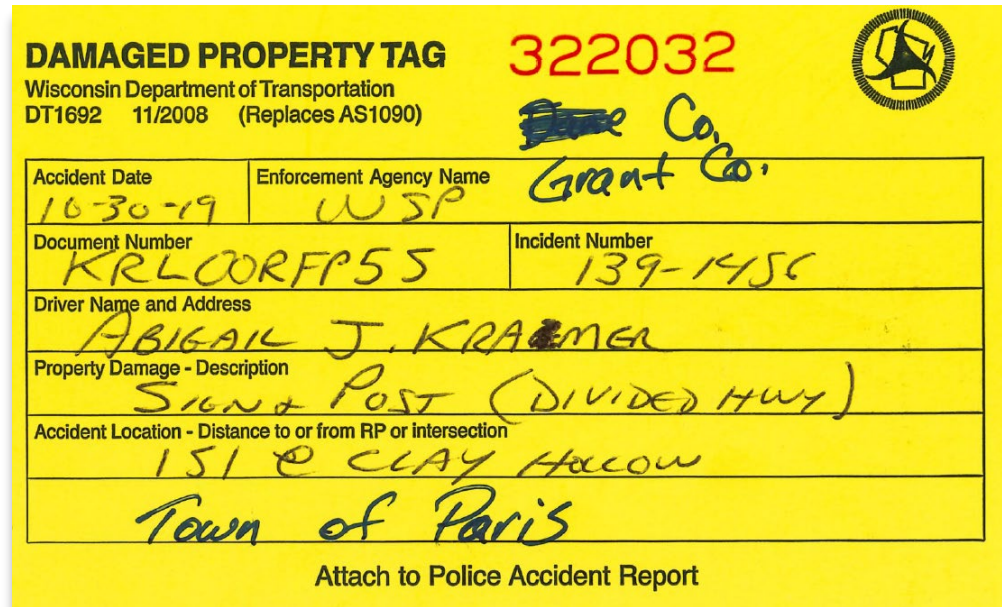 DAMAGED PROPERTY TAG
322032
Wisconsin Department of Transportation
DT1692 11/2008 (Replaces AS1090)
Co.
Grant Co.
Accident Date
10-30-19
Enforcement Agency Name
WSP
Document Number
KRL00RFP55
Incident Number
139-1456
Driver Name and Address
ABIGAIL J. KRAEMER
Property Damage - Description
SIGN & POST (DIVIDED HWY)
Accident Location - Distance to or from RP or intersection
151 @ CLAY HOLLOW
Town of Paris
Attach to Police Accident Report